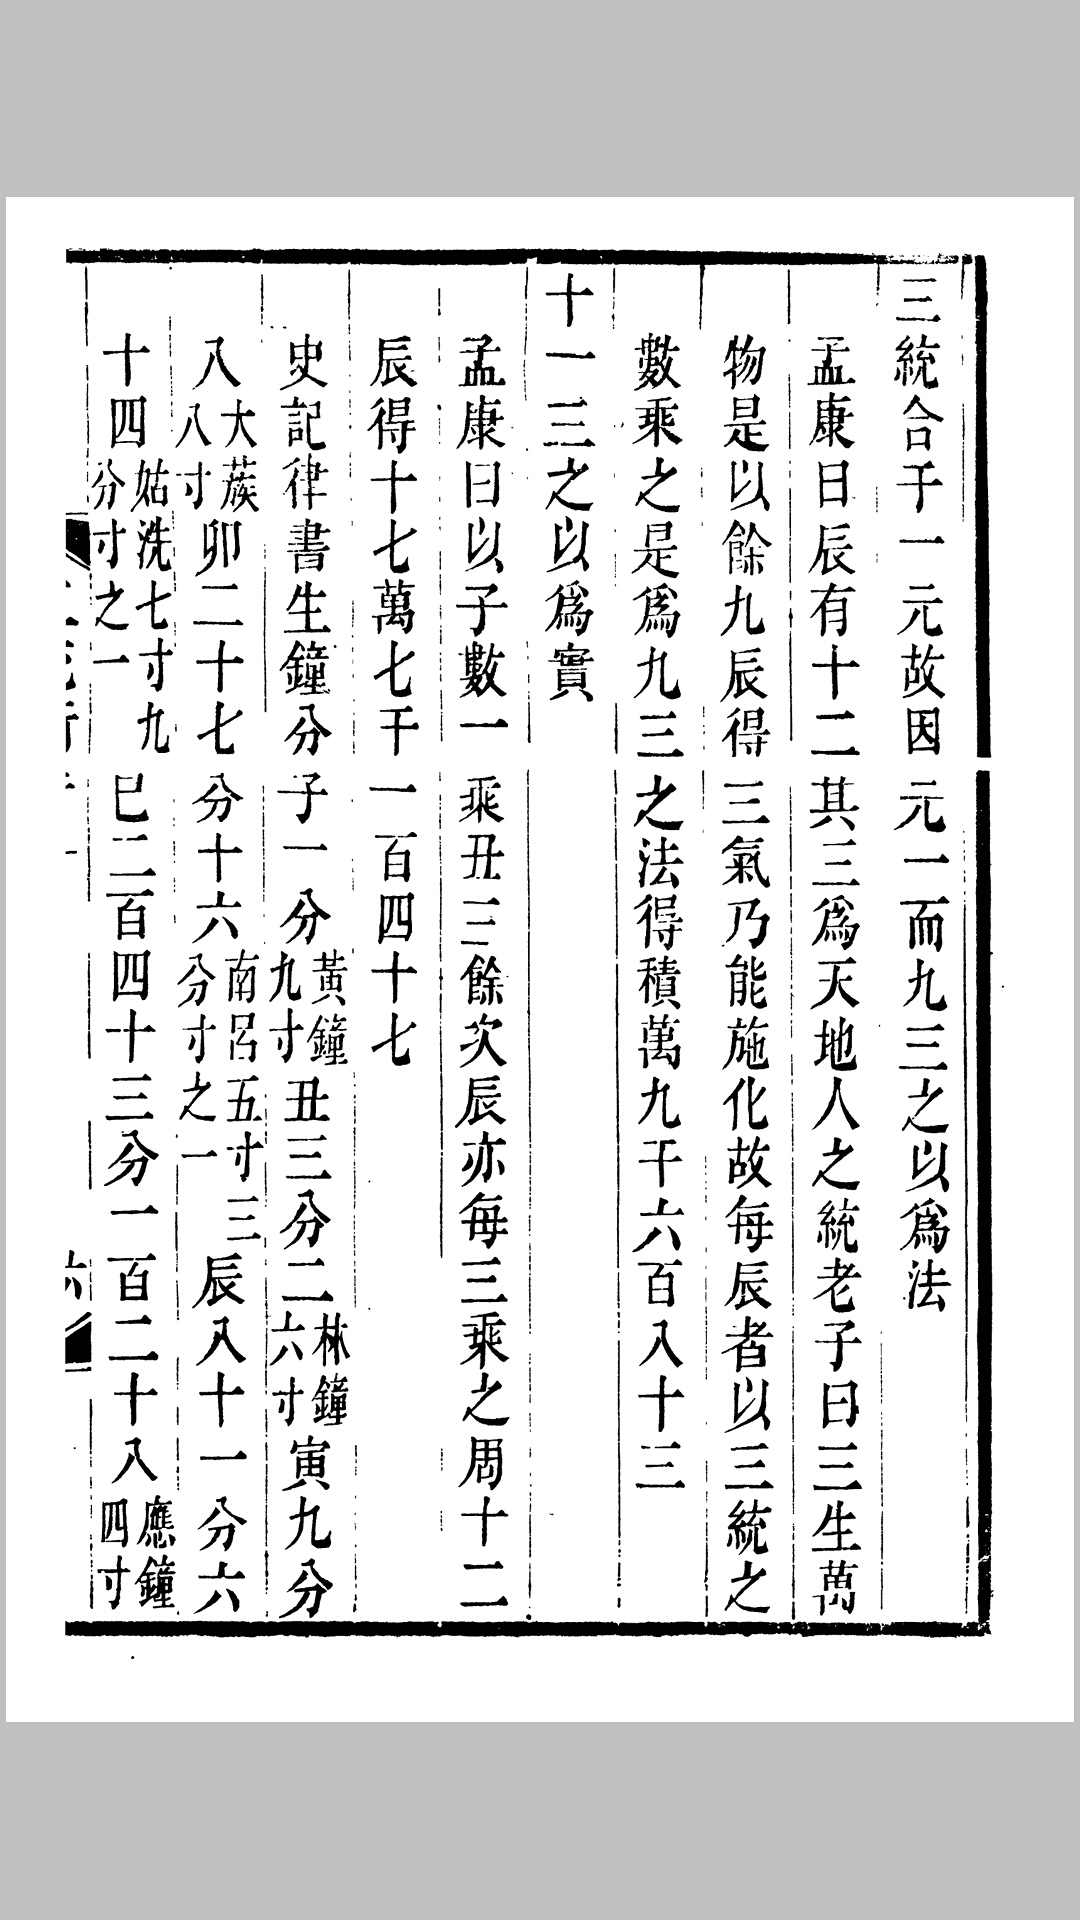 三統合于一元故因元一而九三之以爲法
孟康曰辰有十二其三爲天地人之統老子曰三生萬
物是以餘九辰得三氣乃能施化故每辰者以三統之
數乘之是爲九三之法得積萬九千六百八十三
十一三之以爲實
孟康曰以子數一乘丑三餘次辰亦每三乘之周十二
辰得十七萬七千一百四十七
史記律書生鐘分子一分黃鐘九寸丑三分二林鐘六寸寅九分
八大蔟八寸卯二十七分十六南呂五寸三分寸之一辰八十一分六
十四姑洗七寸九分寸之一巳二百四十三分一百二十八應鐘四寸
六